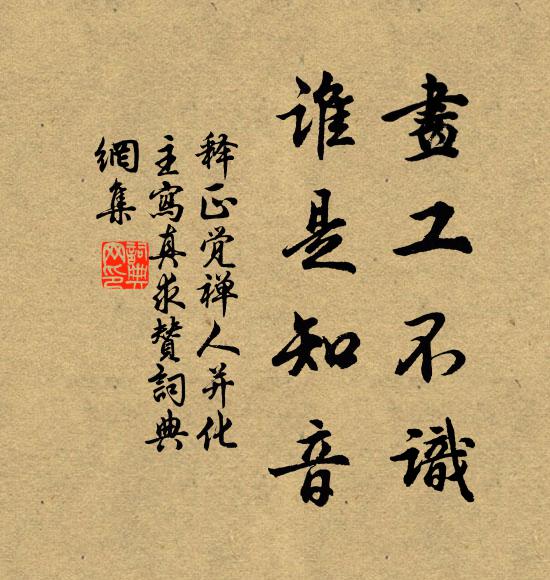 畫工不識
誰是知音
释正觉禅人并化
主寫真求贊詞典
網集
詞典網印